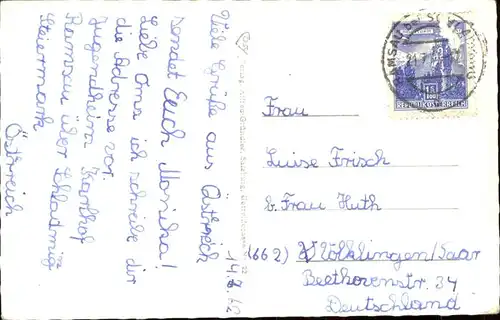 Viele Grüße aus Östreich
sendet Euch Monika!
Liebe Oma ich schreibe dir
die Adresse vor.
Jugendheim Karlhof
Ramsau über Schladmig
Steiermark
Österreich
REPUBLIK ÖSTERREICH
Frau
Luise Frisch
b. Frau Huth
(662) Völklingen/Saar
Beethovenstr. 34
Deutschland